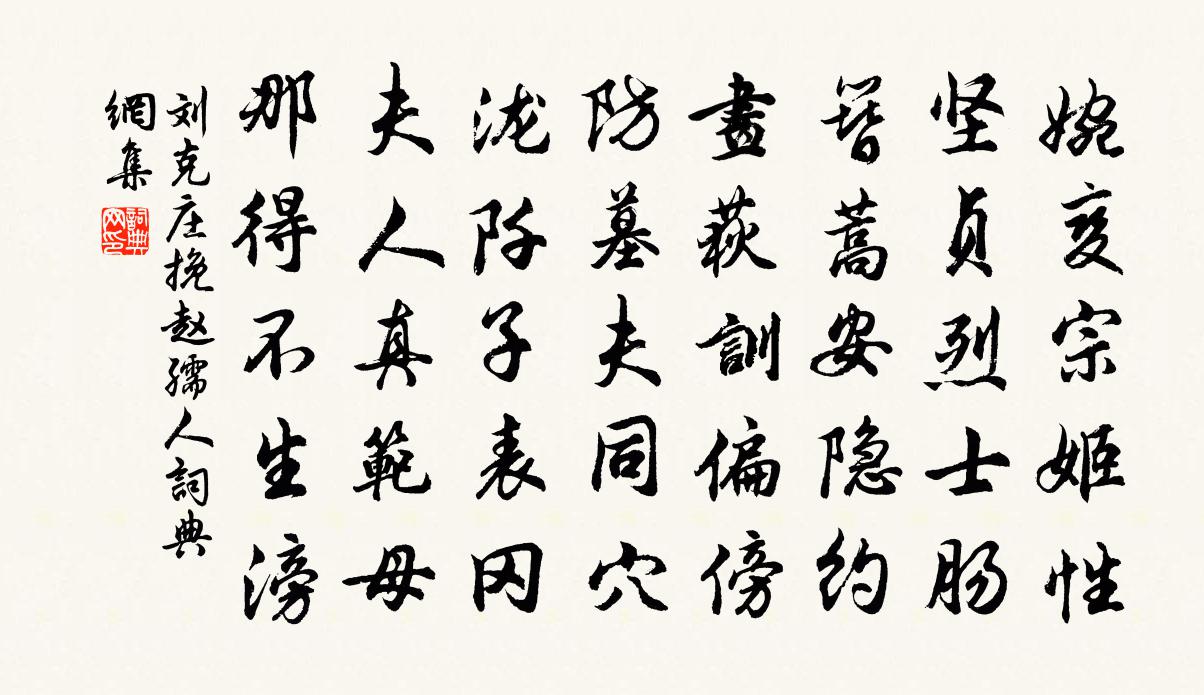 婉变宗姬性
坚贞烈士肠
簪蒿安隐约
畫荻訓偏傍
防墓夫同穴
泷阡子表冈
夫人真範母
那得不生滂
刘克庄挽赵孺人詞典
網集
詞典
网印